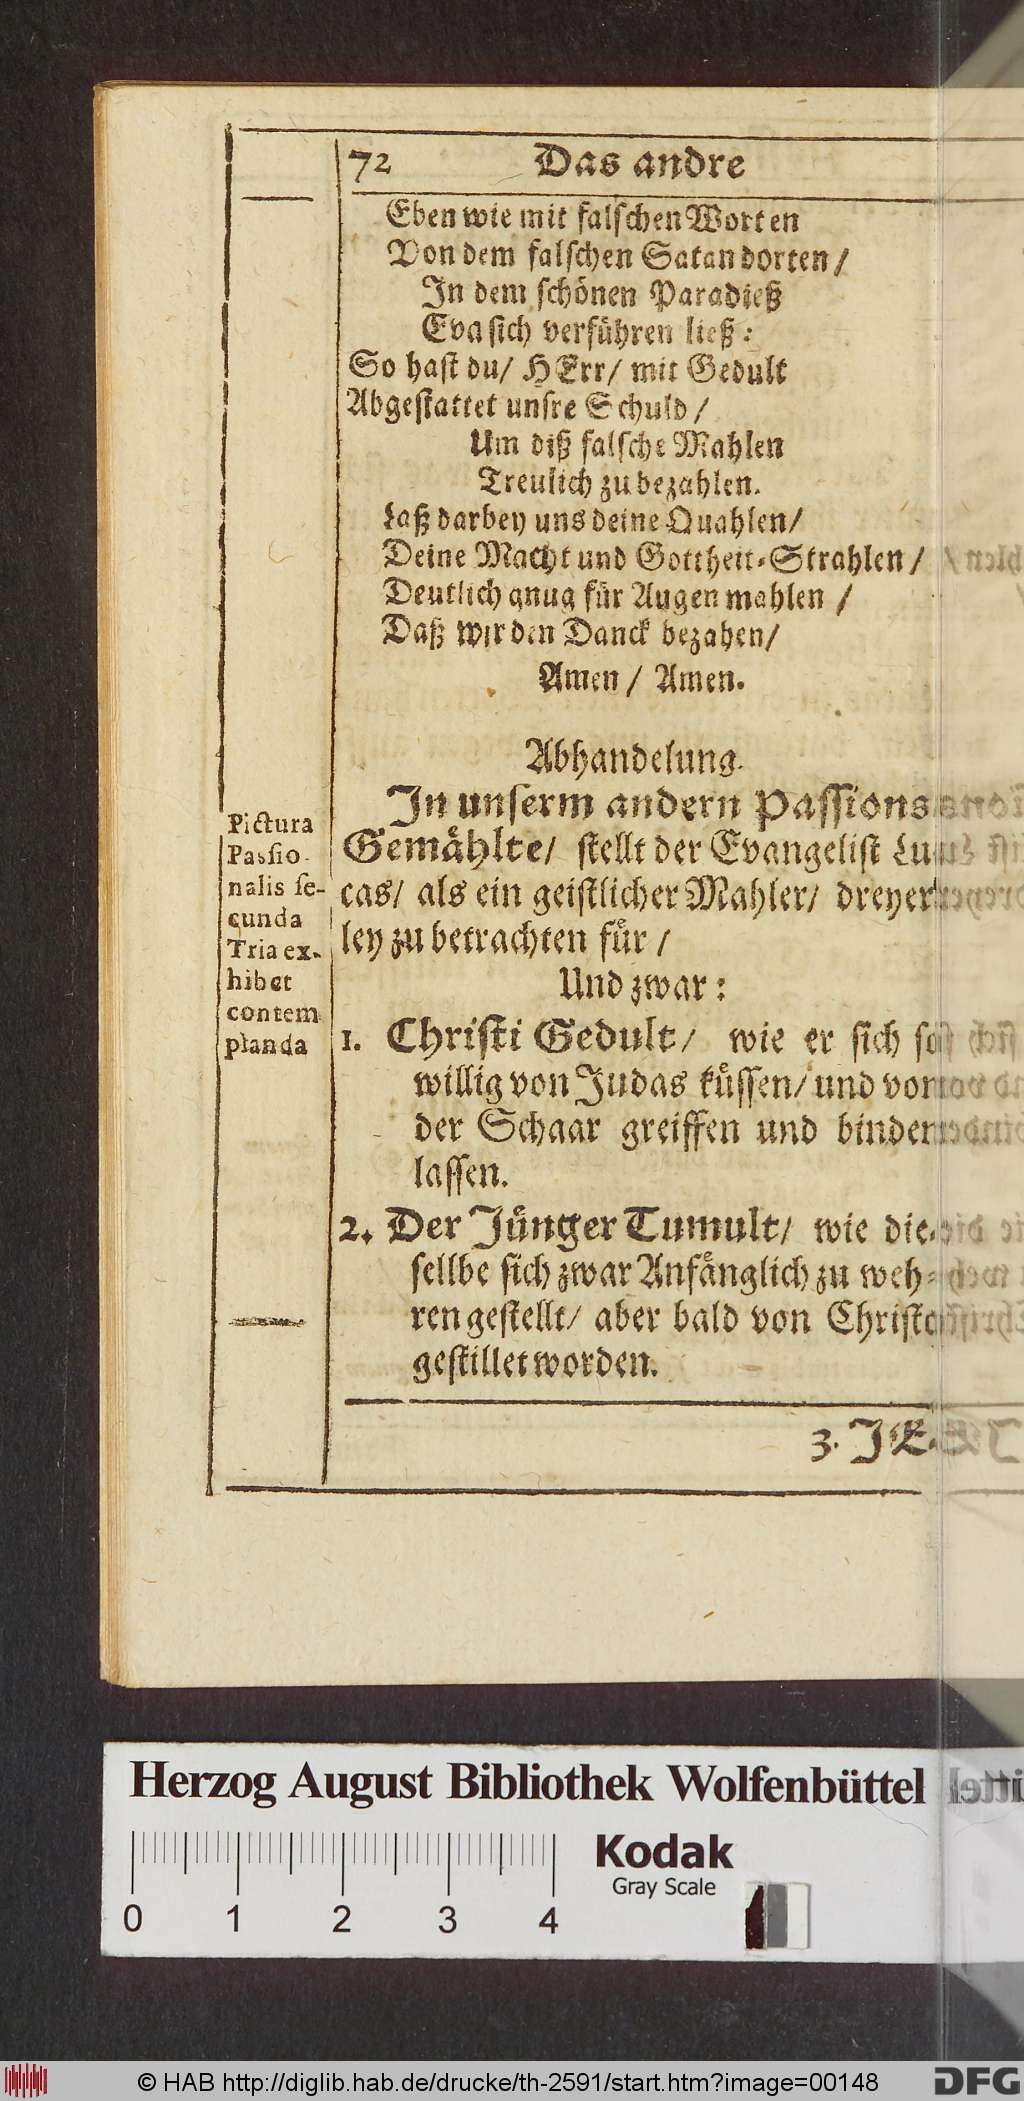 72 Das andre
Eben wie mit falschen Worten
Von dem falschen Satan dorten /
In dem schönen Paradieß
Eva sich verführen ließ:
So hast du / HErr / mit Gedult
Abgestattet unsre Schuld /
Um diß falsche Mahlen
Treulich zu bezahlen.
Laß darbey uns deine Quahlen /
Deine Macht und Gottheit-Strahlen /
Deutlich gnug für Augen mahlen /
Daß wir den Danck bezahen /
Amen / Amen.
Abhandelung.
In unserm andern Passions
Gemählte / stellt der Evangelist Lu-
cas / als ein geistlicher Mahler / dreyer-
ley zu betrachten für /
Und zwar:
1. Christi Gedult / wie er sich so
willig von Judas küssen / und von
der Schaar greiffen und binden
lassen.
2. Der Jünger Tumult / wie die-
sellbe sich zwar Anfänglich zu weh-
ren gestellt / aber bald von Christo
gestillet worden.
3. JE-
Pictura
Passio-
nalis se-
cunda
Tria ex-
hibet
contem
planda
Herzog August Bibliothek Wolfenbüttel
0 1 2 3 4
Kodak
Gray Scale
© HAB http://diglib.hab.de/drucke/th-2591/start.htm?image=00148
DFG